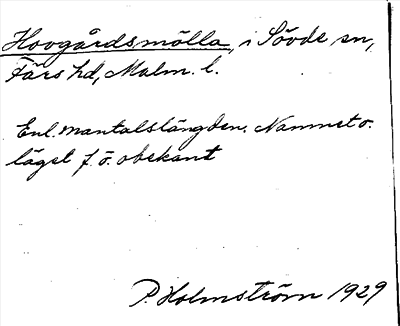 Hovgårdsmölla, i Sövde sn,
Färs hd, Malm. l.
Enl. mantalslängden. Namnet o.
läget f. ö. obekant
P. Holmström 1929